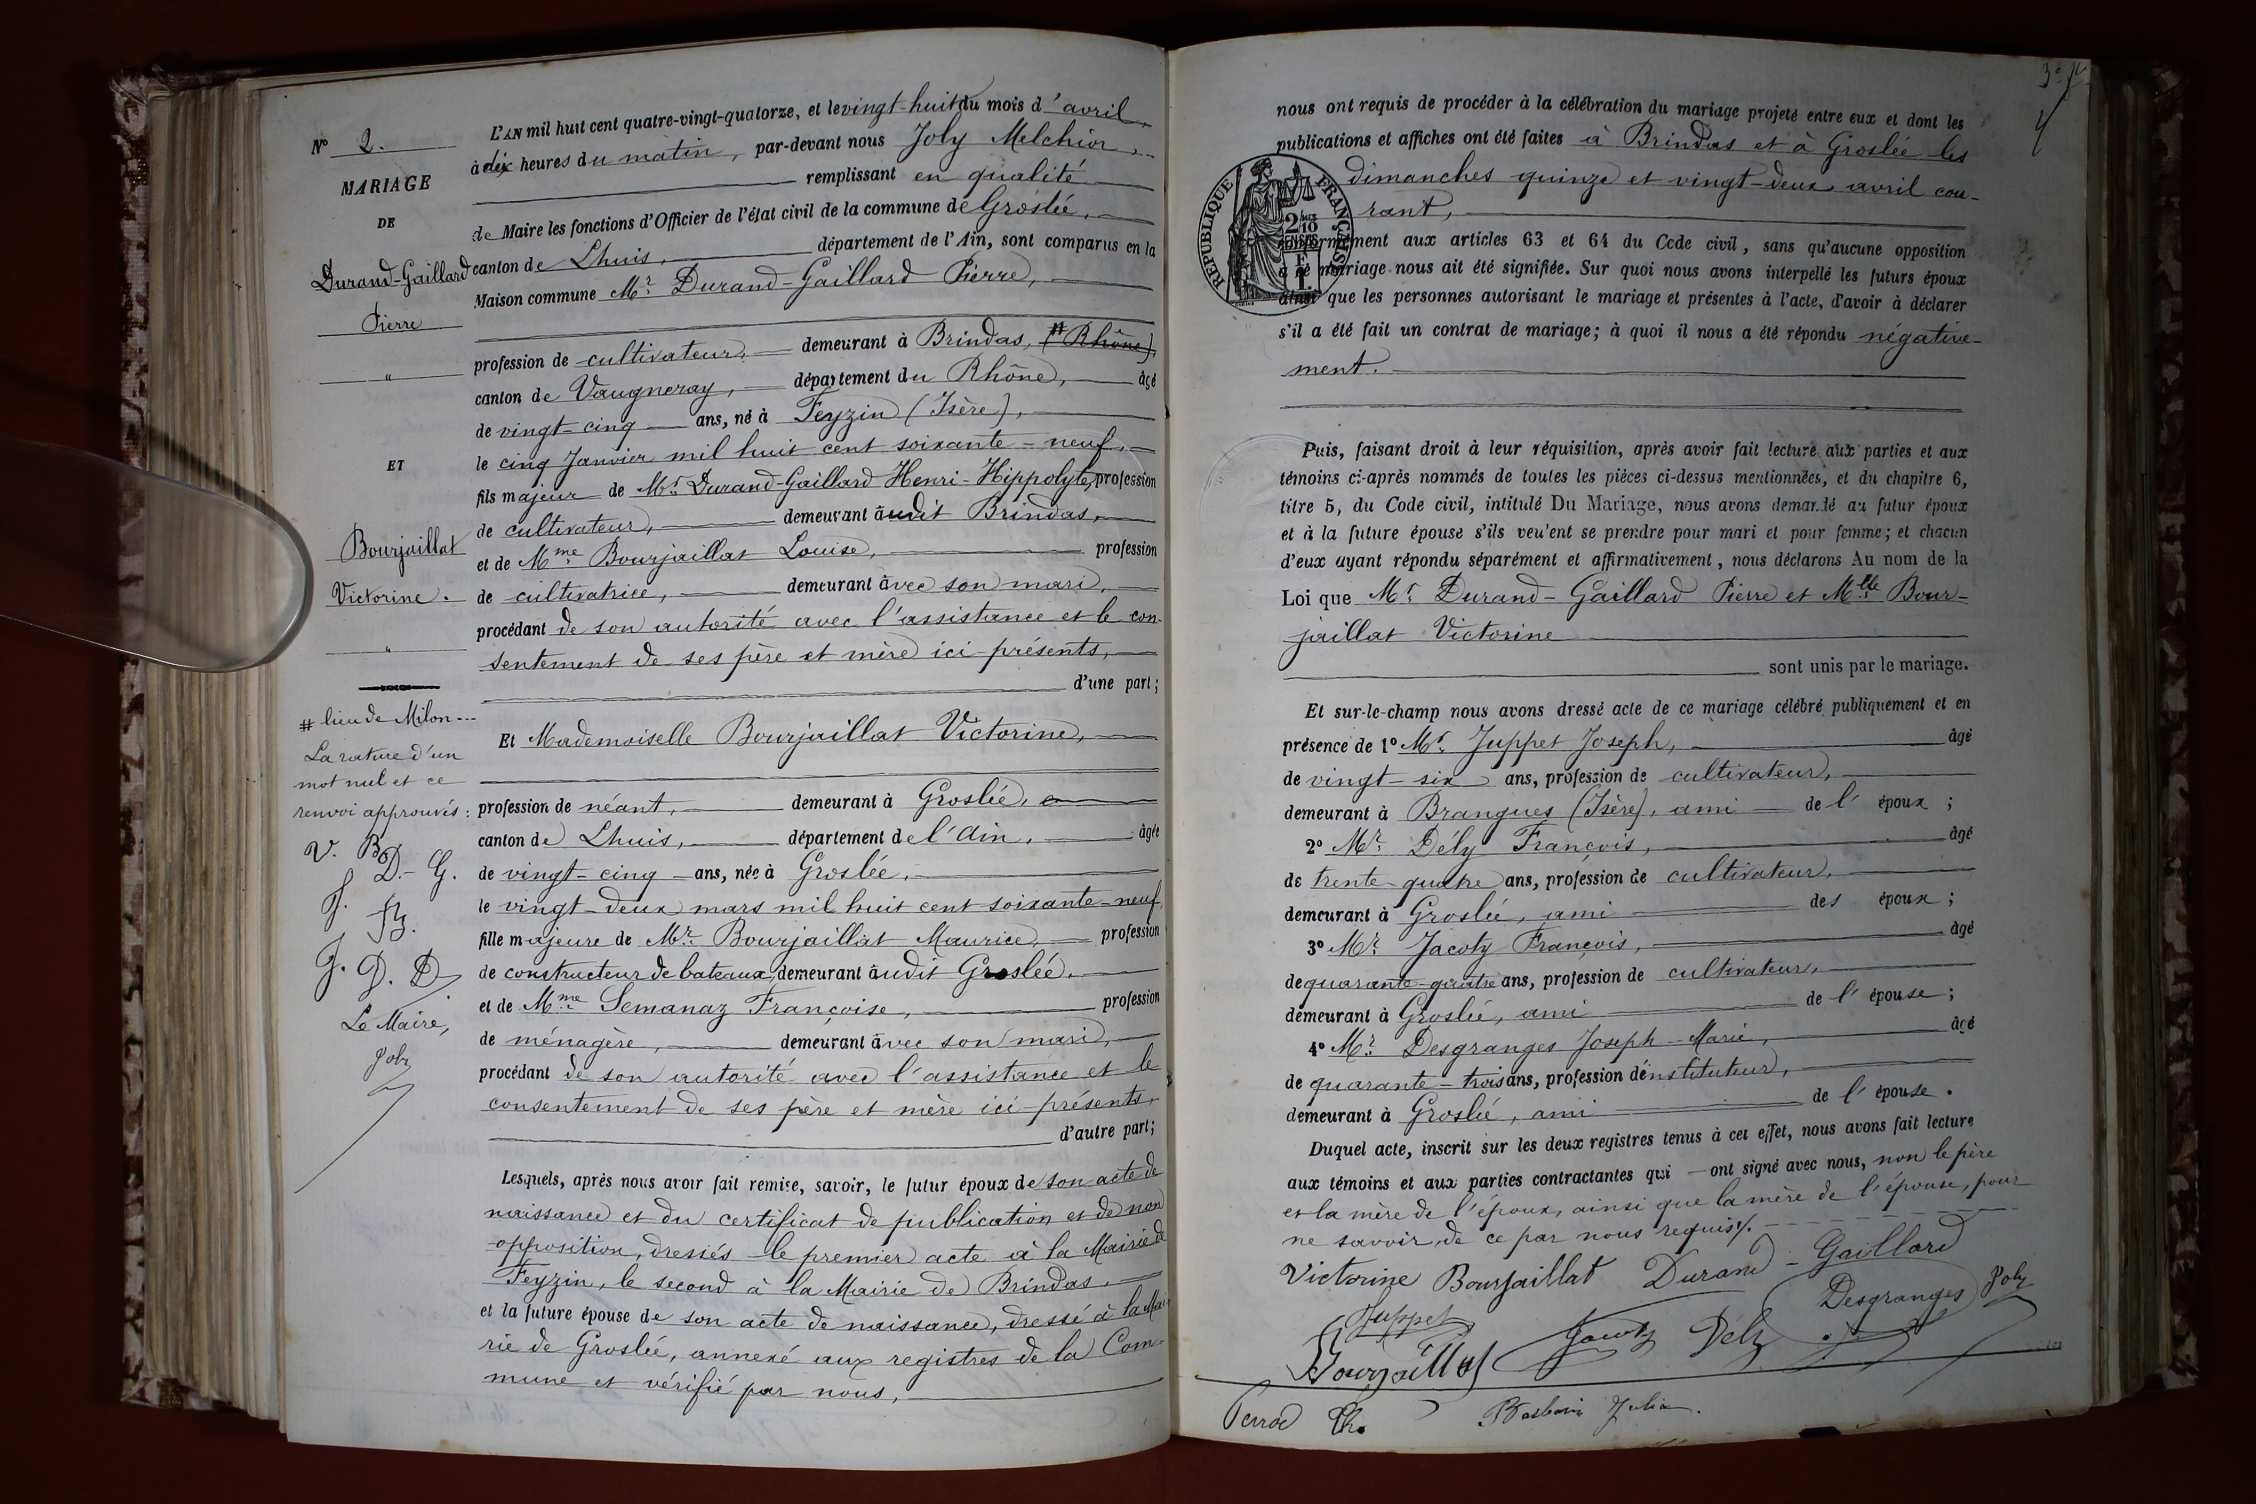 N° 2.
MARIAGE
DE
Durand-Gaillard
Pierre
"
ET
Bourjaillat
Victorine.
"
# lieu de Milon...
La rature d'un
mot nul et ce
renvoi approuvés :
V. B.
D.-G.
J. B.
J. D. D
Le Maire,
Joly
L'AN mil huit cent quatre-vingt-quatorze, et le vingt-huit du mois d'avril,
à dix heures du matin, par-devant nous Joly Melchior,
remplissant en qualité
de Maire les fonctions d'Officier de l'état civil de la commune de Groslée,
canton de Lhuis, département de l'Ain, sont comparus en la
Maison commune Mr. Durand-Gaillard Pierre,
profession de cultivateur, demeurant à Brindas, # (Rhône),
canton de Vaugneray, département du Rhône, âgé
de vingt-cinq ans, né à Feyzin (Isère),
le cinq Janvier mil huit cent soixante-neuf,
fils majeur de Mr. Durand-Gaillard Henri-Hippolyte, profession
de cultivateur, demeurant audit Brindas,
et de Mme Bourjaillat Louise, profession
de cultivatrice, demeurant avec son mari,
procédant de son autorité avec l'assistance et le con-
sentement de ses père et mère ici présents,
d'une part;
Et Mademoiselle Bourjaillat Victorine,
profession de néant, demeurant à Groslée,
canton de Lhuis, département de l'Ain, âgée
de vingt-cinq ans, née à Groslée,
le vingt-deux mars mil huit cent soixante-neuf
fille majeure de Mr. Bourjaillat Maurice, profession
de constructeur de bateaux, demeurant audit Groslée,
et de Mme Semanaz Françoise, profession
de ménagère, demeurant avec son mari,
procédant de son autorité avec l'assistance et le
consentement de ses père et mère ici présents,
d'autre part;
Lesquels, après nous avoir fait remise, savoir, le futur époux de son acte de
naissance et du certificat de publication et de non
opposition, dressés le premier acte à la Mairie de
Feyzin, le second à la Mairie de Brindas,
et la future épouse de son acte de naissance, dressé à la Mai-
rie de Groslée, annexé aux registres de la Com-
mune et vérifié par nous,
nous ont requis de procéder à la célébration du mariage projeté entre eux et dont les
publications et affiches ont été faites à Brindas et à Groslée les
dimanches quinze et vingt-deux avril cou-
rant,
RÉPUBLIQUE FRANÇAISE
conformément aux articles 63 et 64 du Code civil, sans qu'aucune opposition
à ce mariage nous ait été signifiée. Sur quoi nous avons interpellé les futurs époux
ainsi que les personnes autorisant le mariage et présentes à l'acte, d'avoir à déclarer
s'il a été fait un contrat de mariage; à quoi il nous a été répondu négative-
ment.
Puis, faisant droit à leur réquisition, après avoir fait lecture aux parties et aux
témoins ci-après nommés de toutes les pièces ci-dessus mentionnées, et du chapitre 6,
titre 5, du Code civil, intitulé Du Mariage, nous avons demandé au futur époux
et à la future épouse s'ils veulent se prendre pour mari et pour femme; et chacun
d'eux ayant répondu séparément et affirmativement, nous déclarons Au nom de la
Loi que Mr. Durand-Gaillard Pierre et Mlle Bour-
jaillat Victorine
sont unis par le mariage.
Et sur-le-champ nous avons dressé acte de ce mariage célébré publiquement et en
présence de 1° Mr. Juppet Joseph, âgé
de vingt-six ans, profession de cultivateur,
demeurant à Brangues (Isère), ami de l'époux ;
2° Mr. Dély François, âgé
de trente-quatre ans, profession de cultivateur,
demeurant à Groslée, ami des époux ;
3° Mr. Jacoty François, âgé
de quarante-quatre ans, profession de cultivateur,
demeurant à Groslée, ami de l'épouse ;
4° Mr. Desgranges Joseph-Marie, âgé
de quarante-trois ans, profession d'instituteur,
demeurant à Groslée, ami de l'épouse.
Duquel acte, inscrit sur les deux registres tenus à cet effet, nous avons fait lecture
aux témoins et aux parties contractantes qui ont signé avec nous, non le père
et la mère de l'époux, ainsi que la mère de l'épouse, pour
ne savoir, de ce par nous requis/.
Victorine Bourjaillat Durand-Gaillard
Juppet Jacoty Dély Desgranges Joly
Bourjaillat
Perrod Th. Julia